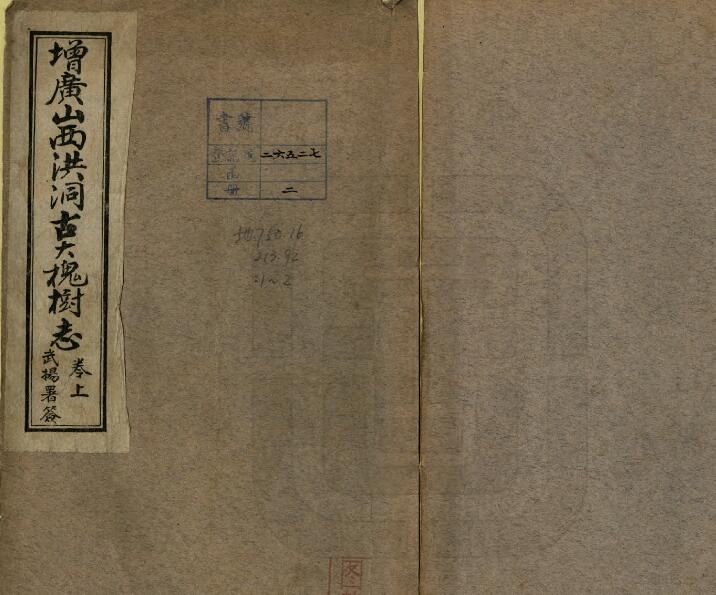 增廣山西洪洞古大槐樹志
卷上
武揚署簽
書號
二六五二七
函
冊 二
地750.16
213.92
:1~2